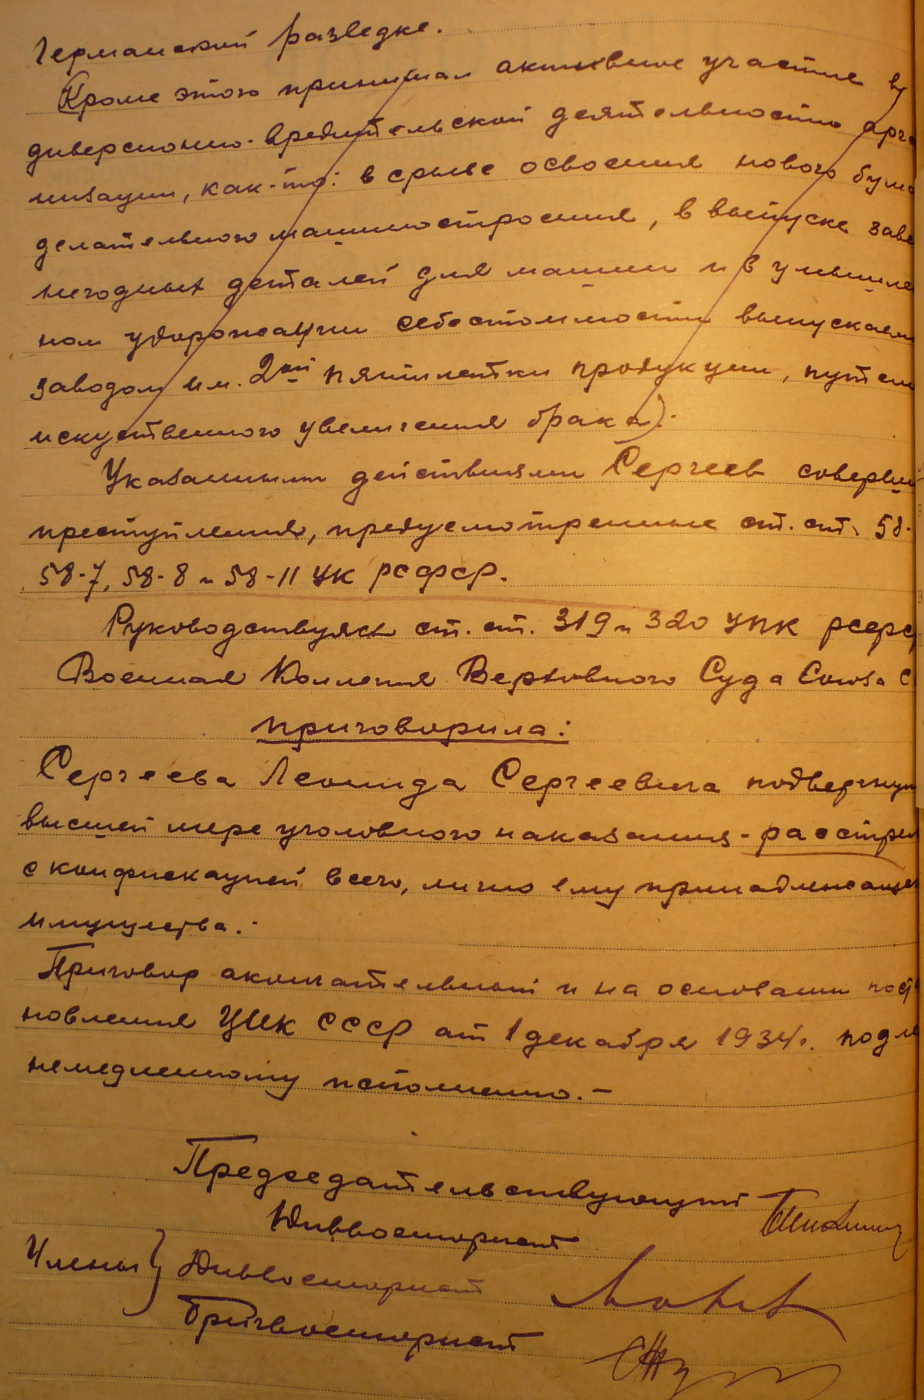 Германской разведке.
Кроме этого принимал активное участие в
диверсионно-вредительской деятельности орга
низации, как-то: в срыве освоения нового бума
делательного машиностроения, в выпуске заве
негодных деталей для машин и в умышле
ном удорожании себестоимости выпускаем
заводом им. 2ой пятилетки продукции, путем
искуственного увеличения брака).
Указанными действиями Сергеев соверши
преступления, предусмотренные ст. ст. 58-
58-7, 58-8 и 58-11 УК РСФСР.
Руководствуясь ст. ст. 319 и 320 УПК РСФС
Военная Коллегия Верховного Суда Союза С
приговорила:
Сергеева Леонида Сергеевича подвергнут
высшей мере уголовного наказания - расстрел
с конфискацией всего, лично ему принадлежаще
имущества.-
Приговор окончательный и на основании поста
новления ЦИК СССР от 1 декабря 1934г. подле
немедленному исполнению.-
Председательствующий
Диввоенюрист
Члены } Диввоенюрист
Бригвоенюрист